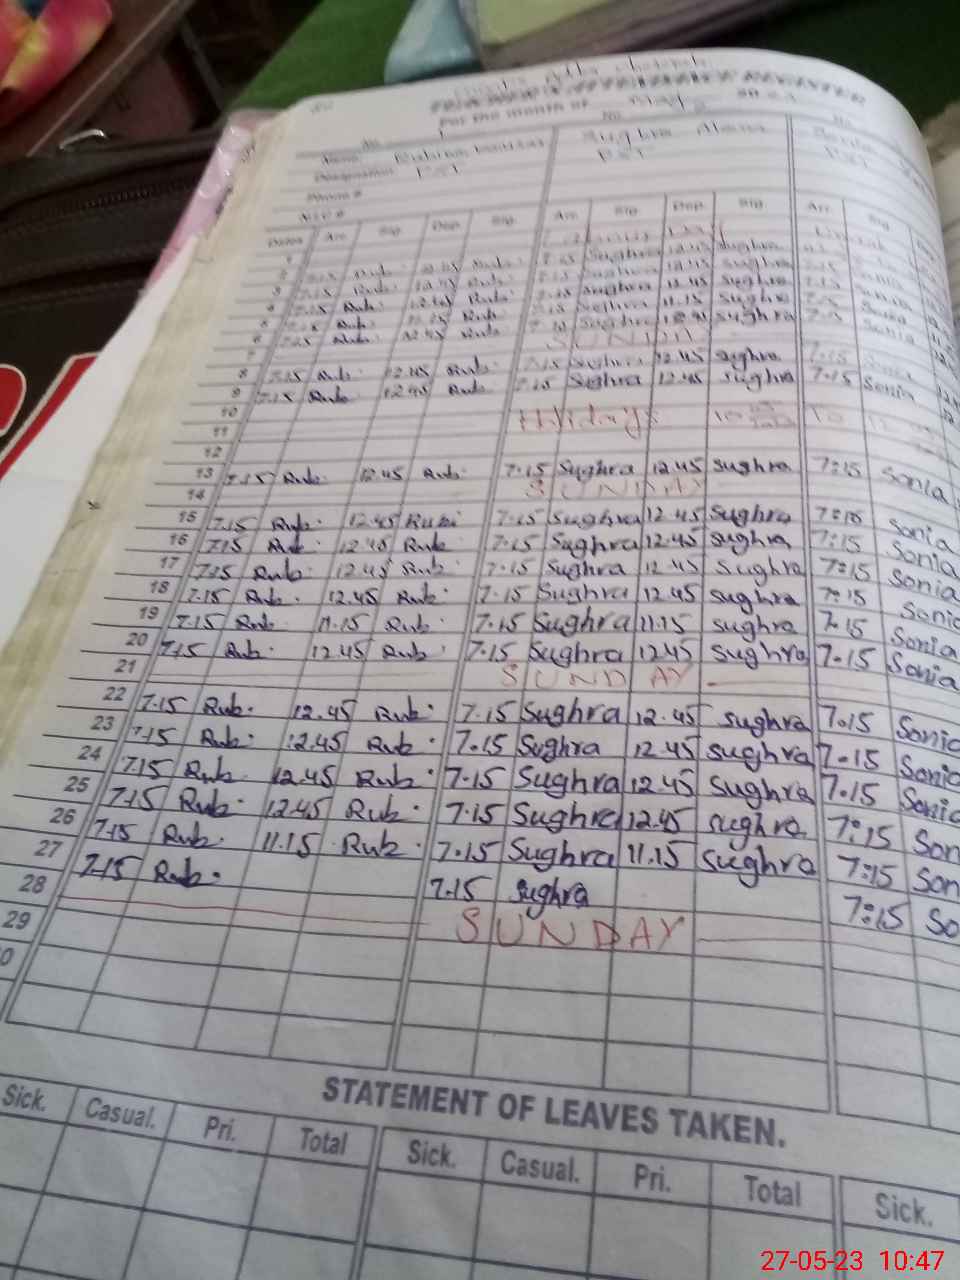 TEACHER'S ATTENDANCE REGISTER
For the month of May 20
No. No. No.
Name Sughra
Designation PST PST PST
Phone #
NIC #
Dates Arr. Sig. Dep. Sig. Arr. Sig. Dep. Sig. Arr. Sig.
1
2 7.15 Rub. 12.45 Rub. 7.15 Sughra 12.45 Sughra 7.15
3 7.15 Rub. 12.45 Rub. 7.15 Sughra 12.45 Sughra 7.15
4 7.15 Rub. 12.45 Rub. 7.15 Sughra 12.45 Sughra 7.15 Sonia
5 7.15 Rub. 11.15 Rub. 7.15 Sughra 11.15 Sughra 7.15 Sonia
6 7.15 Rub. 12.45 Rub. Sughra Sughra 7.15 Sonia
7 SUNDAY
8 7.15 Rub. 12.45 Rub. 7.15 Sughra 12.45 Sughra 7.15 Sonia
9 7.15 Rub. 12.45 Rub. 7.15 Sughra 12.45 Sughra 7.15 Sonia
10
11 Holidays 10 To
12
13 7.15 Rub. 12.45 Rub. 7.15 Sughra 12.45 Sughra 7:15 Sonia
14 SUNDAY
15 7.15 Rub. 12.45 Rubi 7.15 Sughra 12.45 Sughra 7:15 Sonia
16 7.15 Rub. 12.45 Rub. 7.15 Sughra 12.45 Sughra 7:15 Sonia
17 7.15 Rub. 12.45 Rub. 7.15 Sughra 12.45 Sughra 7:15 Sonia
18 7.15 Rub. 12.45 Rub. 7.15 Sughra 12.45 Sughra 7:15 Sonia
19 7.15 Rub. 11.15 Rub. 7.15 Sughra 11.15 Sughra 7.15 Sonia
20 7.15 Rub. 12.45 Rub. 7.15 Sughra 12.45 Sughra 7.15 Sonia
21 SUNDAY
22 7.15 Rub. 12.45 Rub. 7.15 Sughra 12.45 Sughra 7.15 Sonia
23 7.15 Rub. 12.45 Rub. 7.15 Sughra 12.45 Sughra 7.15 Sonia
24 7.15 Rub. 12.45 Rub. 7.15 Sughra 12.45 Sughra 7.15 Sonia
25 7.15 Rub. 12.45 Rub. 7.15 Sughra 12.45 Sughra 7:15 Son
26 7.15 Rub. 11.15 Rub. 7.15 Sughra 11.15 Sughra 7:15 Son
27 7.15 Rub. 7.15 Sughra 7:15 So
28 SUNDAY
29
0
STATEMENT OF LEAVES TAKEN.
Sick. Casual. Pri. Total Sick. Casual. Pri. Total Sick.
27-05-23 10:47